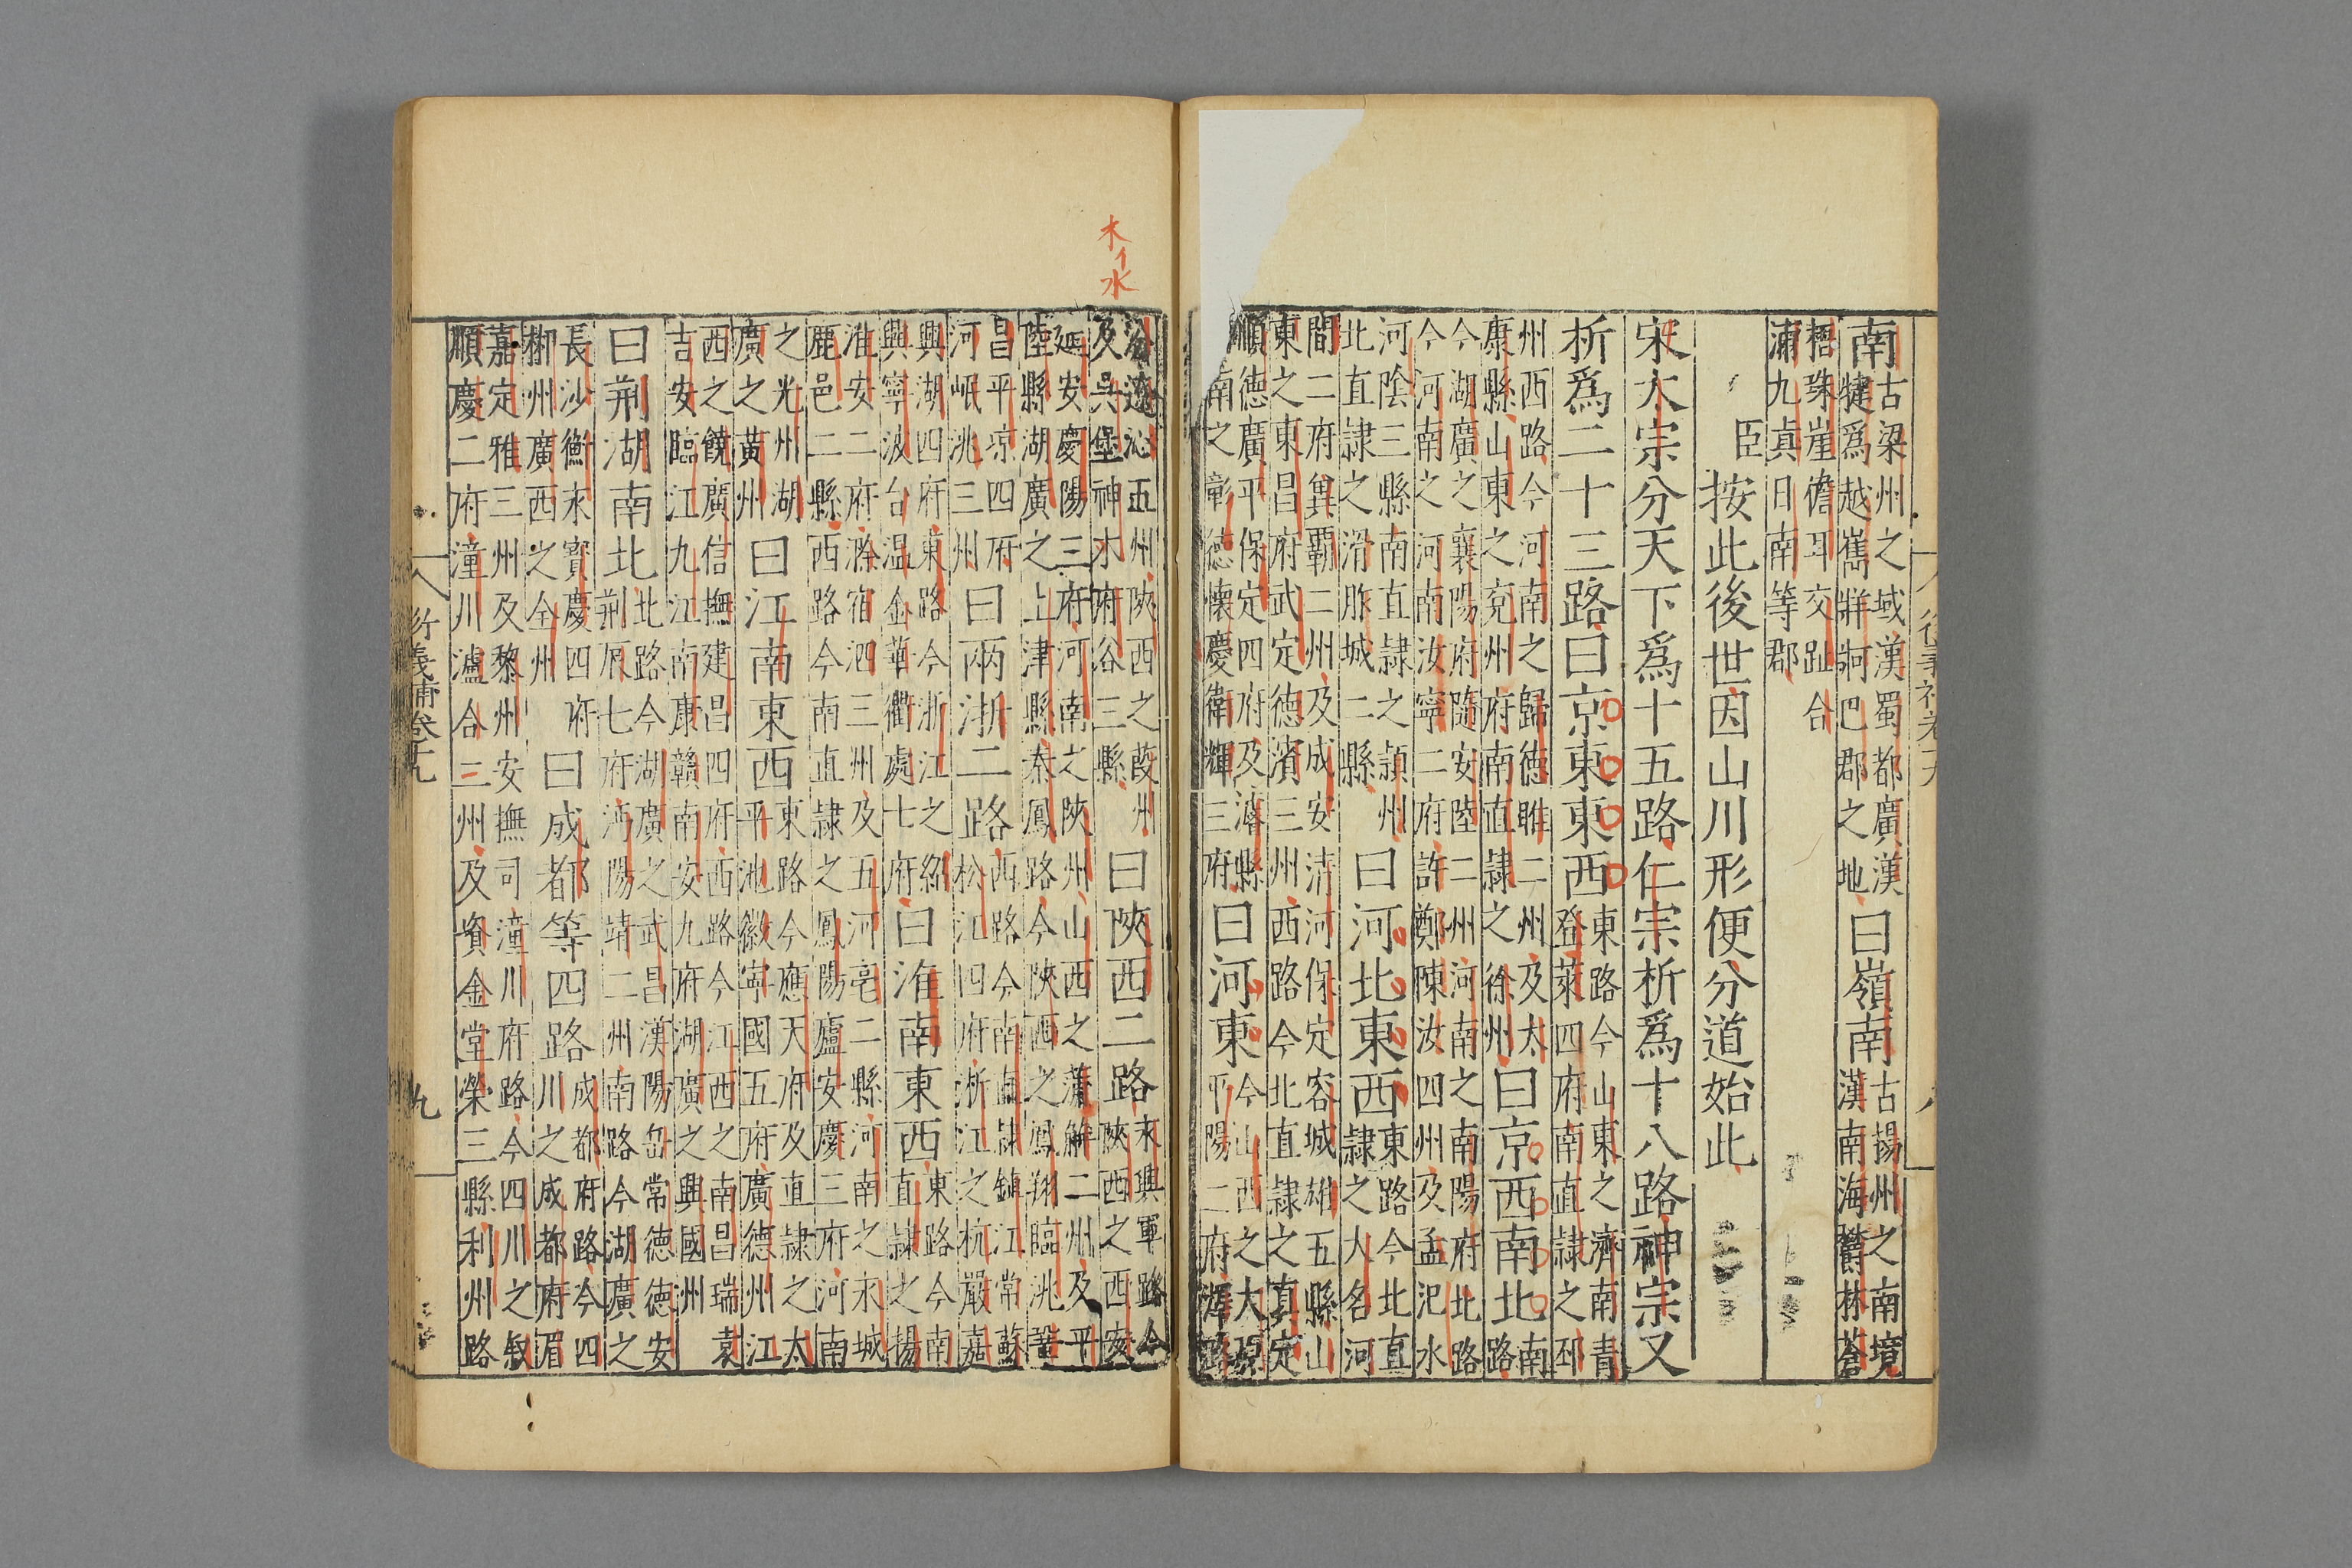 南
古梁州之域漢蜀都廣漢
犍爲越嶲牂牁巴郡之地
曰嶺南
古揚州之南境
漢南海鬱林蒼
梧珠崖儋耳交趾合
浦九真日南等郡
臣按此後世因山川形便分道始此
宋太宗分天下爲十五路仁宗析爲十八路神宗又
析爲二十三路曰京東東西
東路今山東之濟南青
登萊四府南直隸之邳
州西路今河南之歸德睢二州及太
康縣山東之兖州府南直隸之徐州
曰京西南北
南
路
今湖廣之襄陽府隨安陸二州河南之南陽府北路
今河南之河南汝寧二府許鄭陳汝四州及孟汜水
河陰三縣南直隸之潁州
北直隸之滑胙城二縣
曰河北東西
東路今北直
隸之大名河
間二府冀霸二州及成安清河保定容城雄五縣山
東之東昌府武定德濱三州西路今北直隸之真定
順德廣平保定四府及濬縣
南之彰德懷慶衛輝三府
曰河東
今山西之大原
平陽二府澤潞
木イ水
汾遼沁五州陝西之葭州
及吳堡神木府谷三縣
曰陝西二路
永興軍路今
陝西之西安
延安慶陽三府河南之陝州山西之蒲解二州及平
陸縣湖廣之上津縣秦鳳路今陝西之鳳翔臨洮鞏
昌平凉四府
河岷洮三州
曰兩浙二路
西路今南直隸鎮江常蘇
松江四府浙江之杭嚴嘉
興湖四府東路今浙江之紹
興寧波台温金華衢處七府
曰淮南東西
東路今南
直隸之揚
淮安二府滁宿泗三州及五河亳二縣河南之永城
鹿邑二縣西路今南直隸之鳳陽廬安慶三府河南
之光州湖
廣之黃州
曰江南東西
東路今應天府及直隸之太
平池徽寧國五府廣德州江
西之饒廣信撫建昌四府西路今江西之南昌瑞袁
吉安臨江九江南康贛南安九府湖廣之興國州
曰荆湖南北
北路今湖廣之武昌漢陽岳常德德安
荆辰七府沔陽靖二州南路今湖廣之
長沙衡永寳慶四府
郴州廣西之全州
曰成都等四路
成都府路今四
川之成都府眉
嘉定雅三州及黎州安撫司潼川府路今四川之叙
順慶二府潼川瀘合三州及資金堂榮三縣利州路
義補卷十九
九